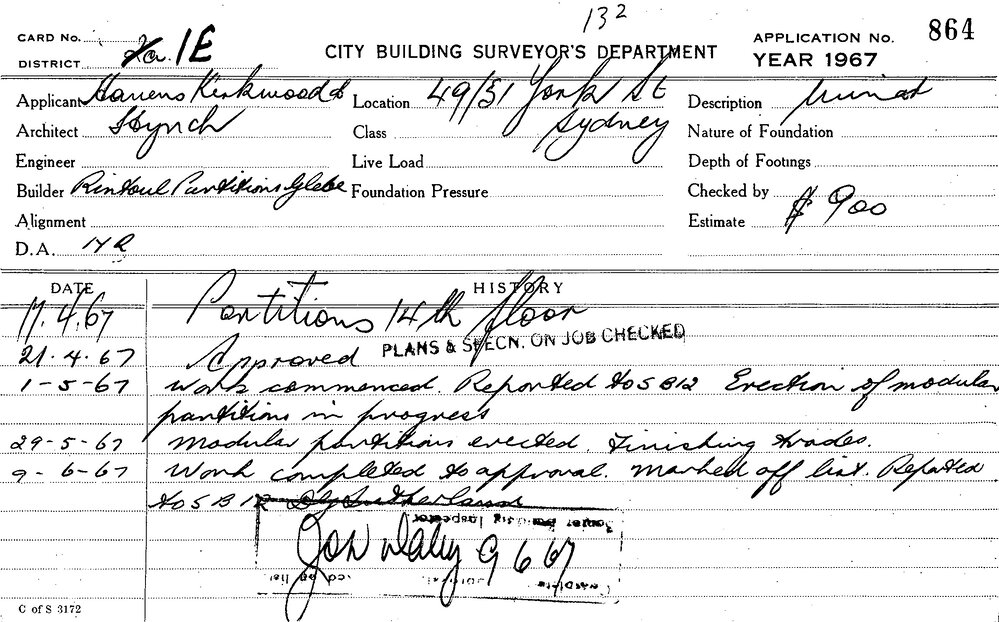 13²
CARD No.
CITY BUILDING SURVEYOR'S DEPARTMENT
APPLICATION No. 864
DISTRICT 1E
YEAR 1967
Applicant Kirkwood &
Location 49/51 York St
Description
Architect Hynch
Class Sydney
Nature of Foundation
Engineer
Live Load
Depth of Footings
Builder Rintoul Partitions Glebe
Foundation Pressure
Checked by
Alignment
Estimate $ 900
D.A.
DATE HISTORY
17.4.67 Partitions 14th floor
PLANS & SPECN. ON JOB CHECKED
21.4.67 Approved
1-5-67 Work commenced. Reported to SB12 Erection of modular
partitions in progress
29-5-67 Modular partitions erected. Finishing trades.
9-6-67 Work completed to approval. Marked off list. Reported
to SB12
Building Inspector
9 6 67
Complete
C of S 3172